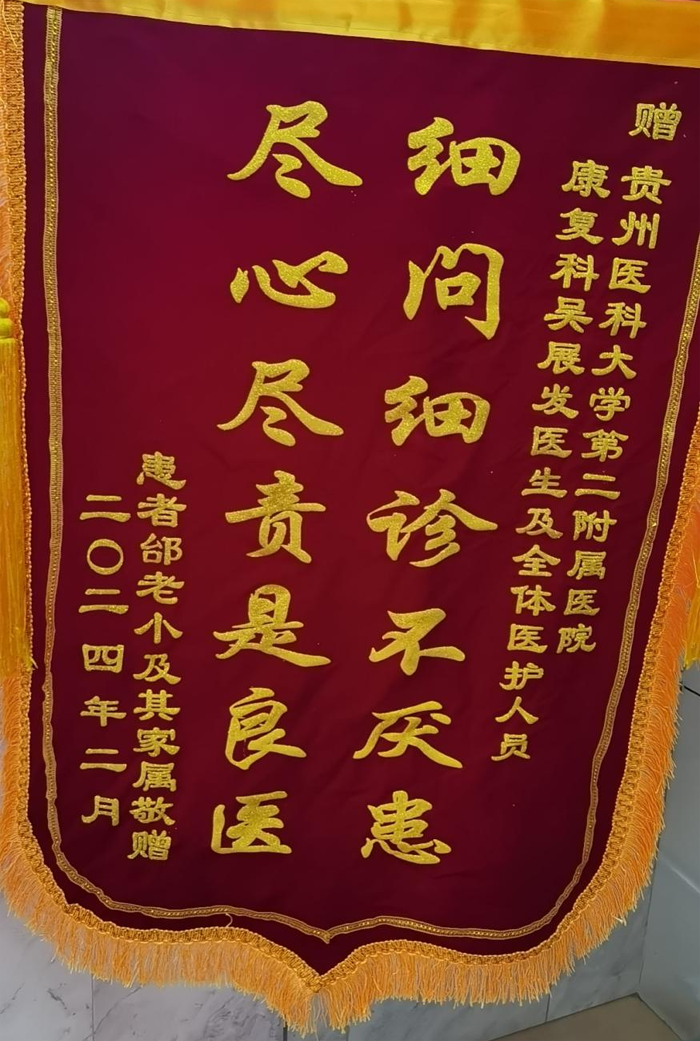 赠
贵州医科大学第二附属医院
康复科吴展发医生及全体医护人员
细问细诊不厌患
尽心尽责是良医
患者邰老小及其家属敬赠
二〇二四年二月